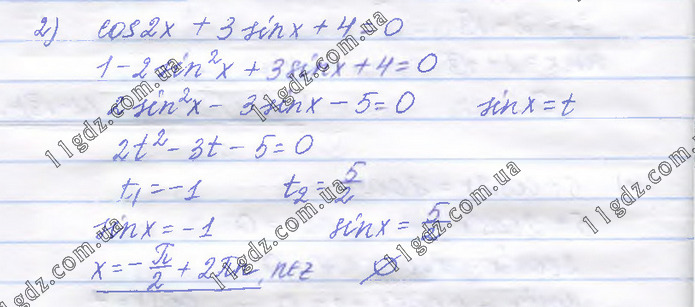 2) cos2x + 3sinx + 4 = 0
1 - 2sin²x + 3sinx + 4 = 0
2sin²x - 3sinx - 5 = 0 sinx = t
2t² - 3t - 5 = 0
t₁ = -1 t₂ = 5/2
sinx = -1 sinx = 5/2
x = -π/2 + 2πn, n∈Z ∅
11gdz.com.ua
11gdz.com.ua
11gdz.com.ua
11gdz.com.ua
11gdz.com.ua